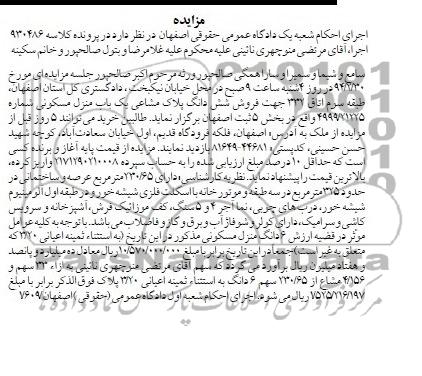 مزایده
اجرای احکام شعبه یک دادگاه عمومی حقوقی اصفهان در نظر دارد در پرونده کلاسه ۹۳۰۴۸۶
اجرا، آقای مرتضی منوچهری نائینی علیه محکوم علیه غلامرضا و بتول صالحپور و خانم سکینه
سامع و شیما و سمیرا و سارا همگی صالحپور ورثه مرحوم اکبر صالحپور جلسه مزایده ای مورخ
۹۴/۱/۳۰ در روز ۴شنبه ساعت ۹ صبح در محل خیابان نیکبخت، دادگستری کل استان اصفهان،
طبقه سوم اتاق ۳۳۷ جهت فروش شش دانگ پلاک مشاعی یک باب منزل مسکونی شماره
۴۹۹۹/۲۱۲۲۵ واقع در بخش ۵ ثبت اصفهان برگزار نماید. طالبین خرید می توانند ۵ روز قبل از
مزایده از ملک به آدرس: اصفهان، فلکه فرودگاه قدیم، اول خیابان سعادت آباد، کوچه شهید
حسن حسینی، کدپستی: ۴۴۶۸۱-۸۱۶۴۹ بازدید نمایند. مزایده از قیمت پایه آغاز و برنده کسی
است که حداقل ۱۰ درصد مبلغ ارزیابی شده را به حساب سپرده ۲۱۷۱۲۹۰۲۱۰۰۰۸ واریز کرده،
بالاترین قیمت را پیشنهاد نماید. نظریه کارشناسی: دارای ۲۳۰/۶۵ مترمربع عرصه و ساختمانی در
حدود ۳۲۵ مترمربع در سه طبقه و موتورخانه با اسکلت فلزی شیشه خور و در طبقه اول آلومینیوم
شیشه خور، درب های چوبی، نما آجر ۴ و ۵ سنگ، کف موزائیک فرش، آشپزخانه و سرویس
کاشی و سرامیک، دارای کولر و شوفاژ آب و برق و گاز و فاضلاب می باشد. با توجه به کلیه عوامل
موثر در قضیه ارزش ۶ دانگ منزل مسکونی مذکور در این تاریخ (به استثناء ثمنیه اعیانی ۲۱۲۰ که
متعلق به غیر است) جمعا در این تاریخ برابر با مبلغ ۱۰/۵۷۰/۰۰۰/۰۰۰ ریال معادل ده میلیارد و پانصد
و هفتاد میلیون ریال برآورد می گردد که سهم آقای مرتضی منوچهری نائینی به ازاء ۳۳ سهم و
۴/۱۵۶ مشاع از ۲۳۰/۶۵ سهم ۶ دانگ به استثناء ثمنیه اعیانی ۲۱۲۰ پلاک فوق الذکر برابر با مبلغ
۱/۵۲۵/۲۱۶/۱۹۷ ریال می شود. اجرای احکام شعبه اول دادگاه عمومی (حقوقی) اصفهان/۷۶۰۹